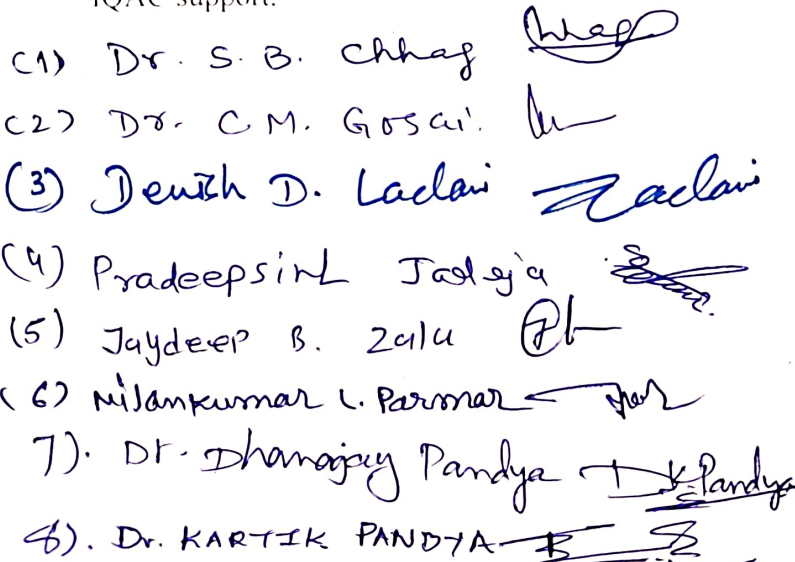 IQAC support.
(1) Dr. S. B. Chhag
(2) Dr. C. M. Gosai.
(3) Denish D. Ladani Ladani
(4) Pradeepsinh Jadeja
(5) Jaydeep B. Zala
(6) Milankumar L. Parmar
7). Dr. Dhananjay Pandya D K Pandya
8). Dr. KARTIK PANDYA